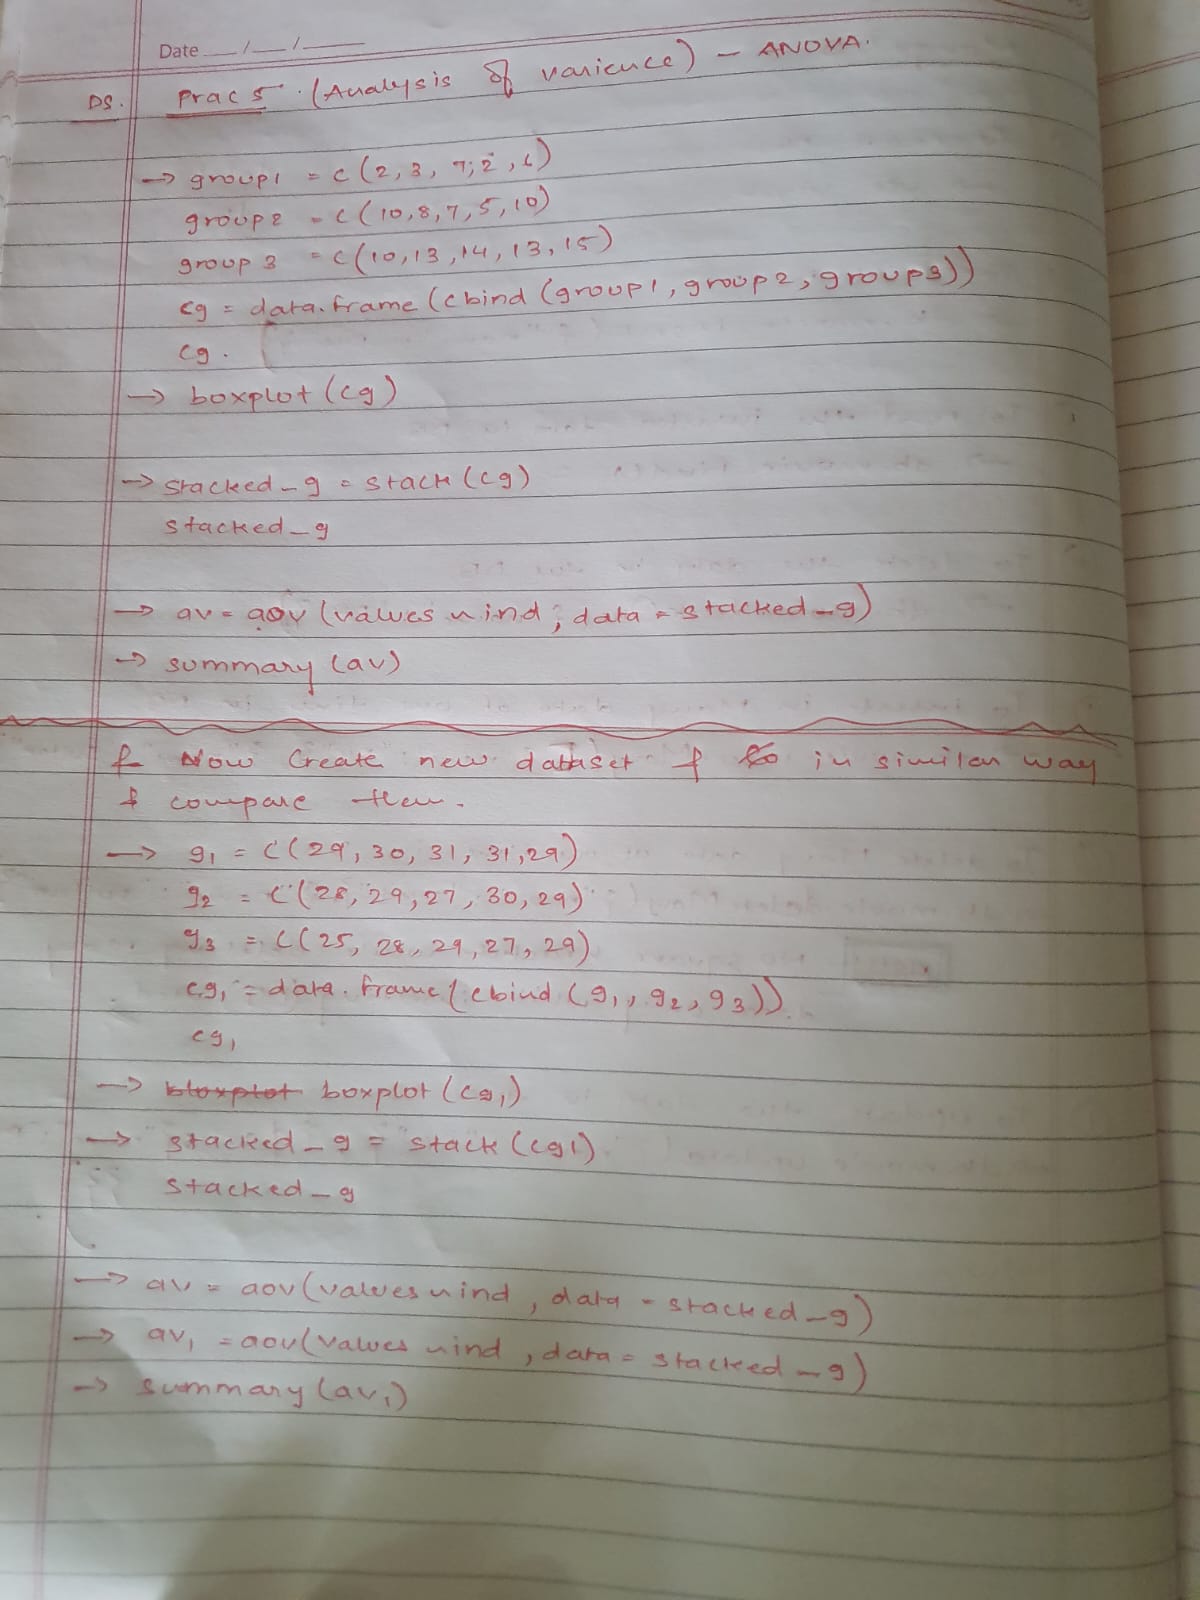 Date __/__/__
DS. Prac 5. (Analysis of varience) - ANOVA.
→ group1 = c(2,3,7,2,6)
group2 = c(10,8,7,5,10)
group 3 = c(10,13,14,13,15)
cg = data.frame(cbind(group1,group2,group3))
cg.
→ boxplot(cg)
→ stacked_g = stack(cg)
stacked_g
→ av = aov(values ~ ind, data = stacked_g)
→ summary(av)
& Now Create new dataset & in similar way
& compare them.
→ g1 = c(29, 30, 31, 31, 29)
g2 = c(28, 29, 27, 30, 29)
g3 = c(25, 28, 29, 27, 29)
cg1 = data.frame(cbind(g1, g2, g3))
cg1
→ bloxplot boxplot(cg1)
→ stacked_g = stack(cg1)
stacked_g
→ av = aov(values ~ ind, data = stacked_g)
→ av1 = aov(values ~ ind, data = stacked_g)
→ summary(av1)